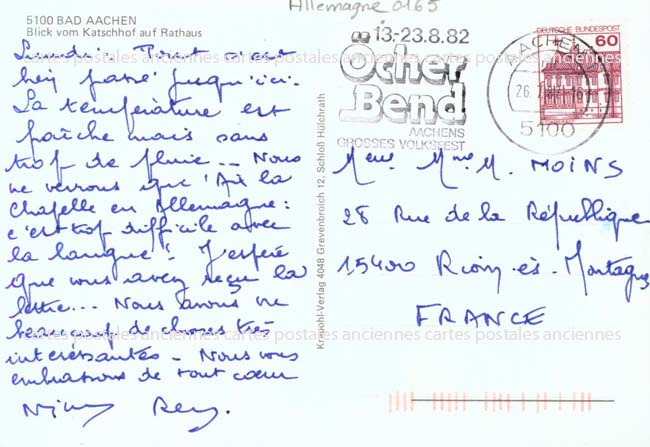 Allemagne 0165
5100 BAD AACHEN
Blick vom Katschhof auf Rathaus
Tout s'est
bien passé jusqu'ici.
La température est
fraîche mais sans
trop de pluie... Nous
ne verrons que Aix la
Chapelle en Allemagne :
c'est trop difficile avec
la langue ! J'espère
que vous avez reçu la
lettre... Nous avons vu
beaucoup de choses très
intéressantes - Nous vous
embrassons de tout cœur
13.-23.8.82
Öcher
Bend
AACHENS
GROSSES VOLKSFEST
AACHEN
26.
5100
DEUTSCHE BUNDESPOST
60
Krapohl-Verlag 4048 Grevenbroich 12, Schloß Hülchrath
MOINS
28 Rue de la République
15400 Riom-ès-Montagnes
FRANCE
cartes postales anciennes cartes postales anciennes cartes postales anciennes
cartes postales anciennes cartes postales anciennes cartes postales anciennes